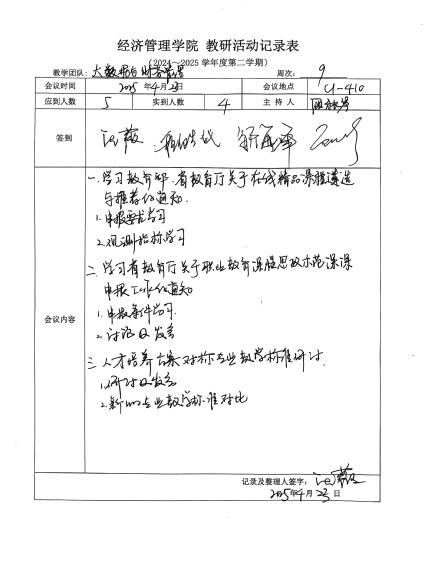 经济管理学院 教研活动记录表
(2024～2025 学年度第二学期)
教学团队: 大数据与财务管理 周次: 9
会议时间 2025年4月23日 会议地点 U-410
应到人数 5 实到人数 4 主 持 人
签到
会议内容
一. 学习教育部、省教育厅关于在线精品课程遴选
与推荐的通知.
1. 申报要求学习
2. 观测指标学习
二. 学习省教育厅关于职业教育课程思政示范课课
申报工作的通知
1. 申报条件学习.
2. 讨论及发言
三. 人才培养方案对标专业教学标准研讨.
1. 研讨及发言
2. 新旧专业教学标准对比
记录及整理人签字:
2025年4月23日